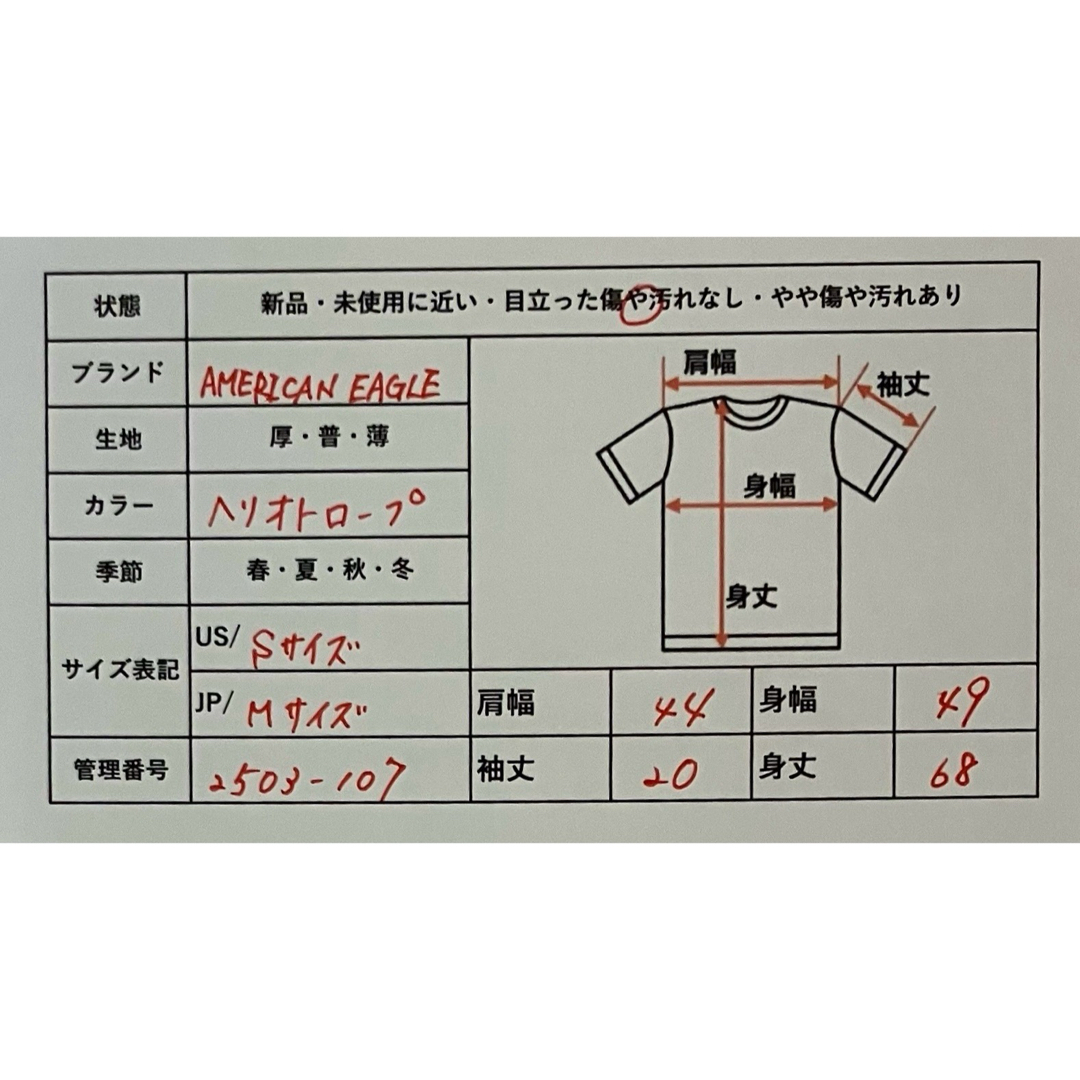 状態 新品・未使用に近い・目立った傷や汚れなし・やや傷や汚れあり
ブランド AMERICAN EAGLE
生地 厚・普・薄
カラー ヘリオトロープ
季節 春・夏・秋・冬
サイズ表記 US/ Sサイズ
JP/ Mサイズ
管理番号 2503-107
肩幅
袖丈
身幅
身丈
肩幅 44 身幅 49
袖丈 20 身丈 68